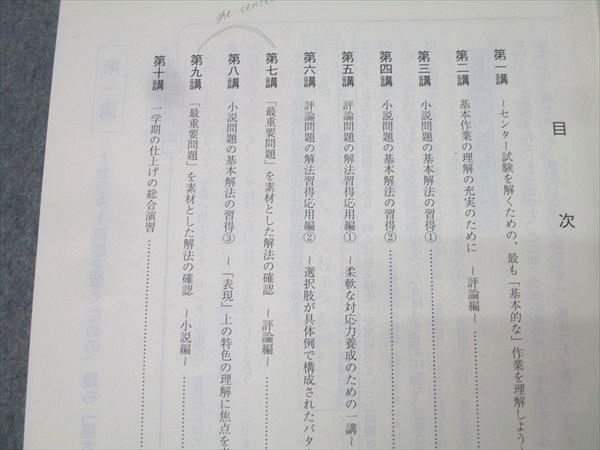 pre-center
目次
第一講 ～センター試験を解くための、最も「基本的な」作業を理解しよう
第二講 基本作業の理解の充実のために ～評論編～
第三講 小説問題の基本解法の習得①
第四講 小説問題の基本解法の習得②
第五講 評論問題の解法習得応用編① ～柔軟な対応力養成のための一講～
第六講 評論問題の解法習得応用編② ～選択肢が具体例で構成されたパタ
第七講 「最重要問題」を素材とした解法の確認 ～評論編～
第八講 小説問題の基本解法の習得③ ～「表現」上の特色の理解に焦点を
第九講 「最重要問題」を素材とした解法の確認 ～小説編～
第十講 一学期の仕上げの総合演習